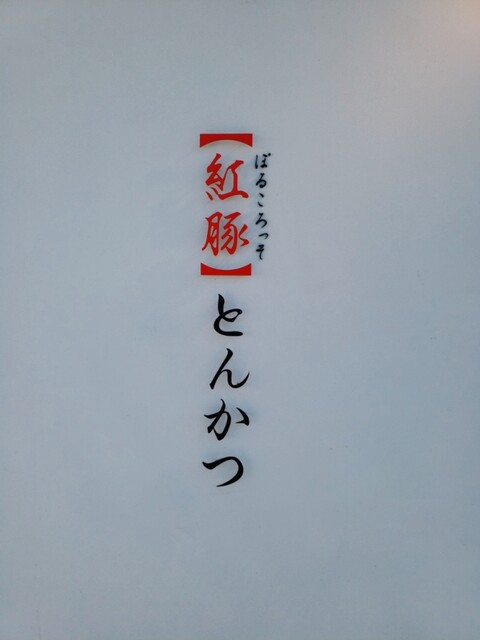 【紅豚】とんかつ
ぽるころっそ